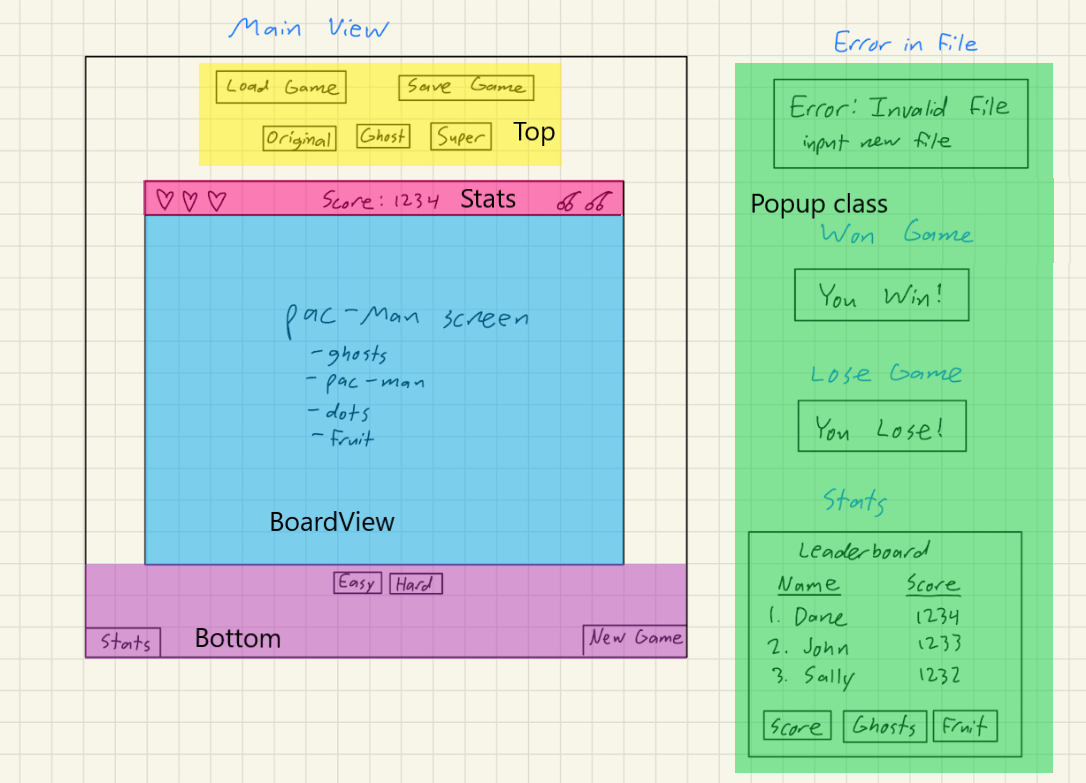 Main View
Load Game
Save Game
Original
Ghost
Super
Top
Score: 1234
Stats
pac-Man screen
- ghosts
- pac-man
- dots
- fruit
BoardView
Easy
Hard
Stats
Bottom
New Game
Error in File
Error: Invalid File
input new file
Popup class
Won Game
You Win!
Lose Game
You Lose!
Stats
Leaderboard
Name Score
1. Dane 1234
2. John 1233
3. Sally 1232
Score
Ghosts
Fruit